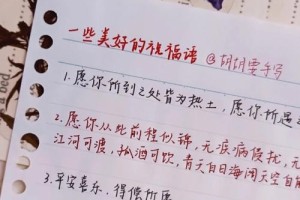 一些美好的祝福语 @胡胡要手写
1.愿你所到之处皆为热土,愿你所遇
2.愿你从此前程似锦,无灾病侵扰,无
江河可渡,孤酒可饮,青天白日海阔天空自
3.平安喜乐、得偿所愿